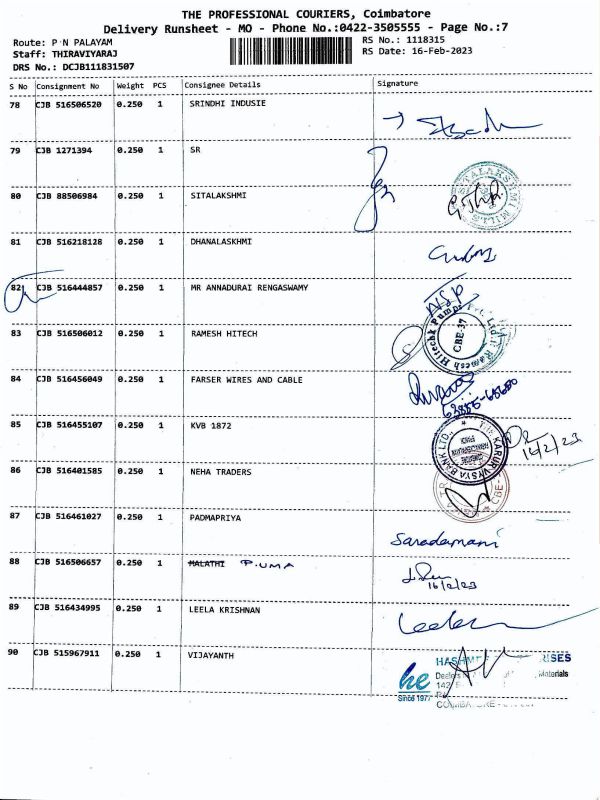 THE PROFESSIONAL COURIERS, Coimbatore
Delivery Runsheet - MO - Phone No.:0422-3505555 - Page No.:7
Route: P N PALAYAM
RS No.: 1118315
Staff: THIRAVIYARAJ
RS Date: 16-Feb-2023
DRS No.: DCJB111831507
S No Consignment No Weight PCS Consignee Details Signature
78 CJB 516506520 0.250 1 SRINDHI INDUSIE
79 CJB 1271394 0.250 1 SR
80 CJB 88506984 0.250 1 SITALAKSHMI
SITALAKSHMI MILLS
81 CJB 516218128 0.250 1 DHANALASKHMI
82 CJB 516444857 0.250 1 MR ANNADURAI RENGASWAMY
83 CJB 516506012 0.250 1 RAMESH HITECH
Ramesh Hitech Pumps Pvt. Ltd.
CBE-37
84 CJB 516456049 0.250 1 FARSER WIRES AND CABLE
85 CJB 516455107 0.250 1 KVB 1872
THE KARUR VYSYA BANK LTD.,
16/2/23
86 CJB 516401585 0.250 1 NEHA TRADERS
CBE-
87 CJB 516461027 0.250 1 PADMAPRIYA
Saradamani
88 CJB 516506657 0.250 1 MALATHI P.UMA
16/2/23
89 CJB 516434995 0.250 1 LEELA KRISHNAN
90 CJB 515967911 0.250 1 VIJAYANTH
he
Since 1977
Materials